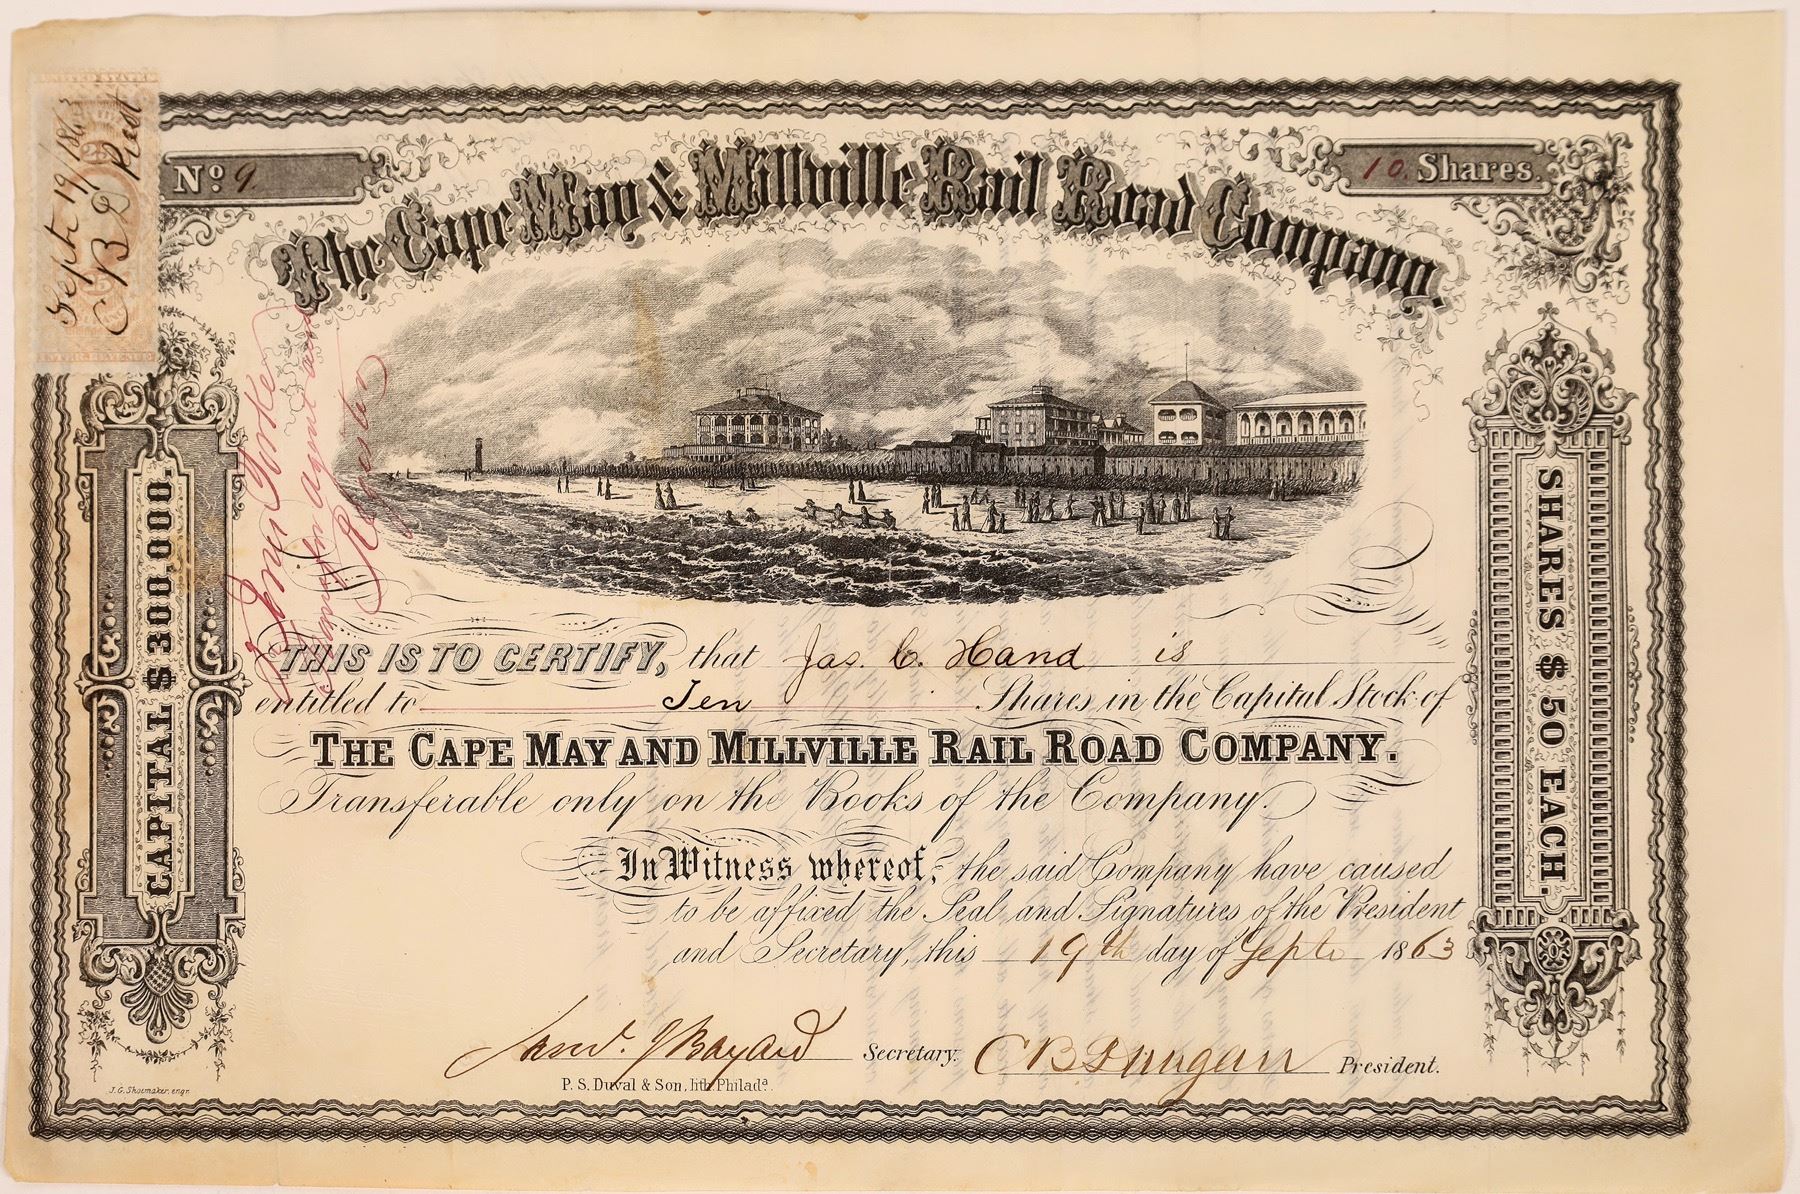 UNITED STATES
Sept. 19/1863
C B D Prest
INTER. REVENUE
No. 9.
10. Shares.
The Cape May & Millville Rail Road Company.
CAPITAL $300,000.
SHARES $50 EACH.
Register
THIS IS TO CERTIFY, that Jas. C. Hand is
entitled to Ten Shares in the Capital Stock of
THE CAPE MAY AND MILLVILLE RAIL ROAD COMPANY.
Transferable only on the Books of the Company.
In Witness whereof, the said Company have caused
to be affixed the Seal and Signatures of the President
and Secretary, this 19th day of Septr 1863
Bayard Secretary. C B Dungan President.
P. S. Duval & Son, lith. Philada.
J. G. Shoemaker, engr.